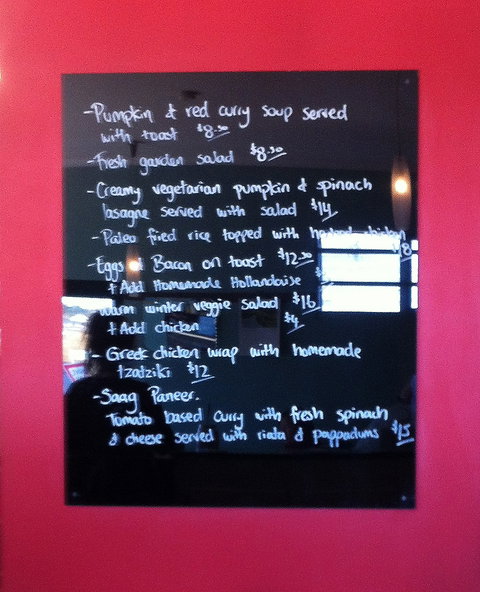 -Pumpkin & red curry soup served
with toast $8.50
-Fresh garden salad $8.50
-Creamy vegetarian pumpkin & spinach
lasagne served with salad $14
-Paleo fried rice topped with chicken
-Eggs & Bacon on toast $12.50
+ Add Homemade Hollandaise
warm winter veggie salad $16
+ Add chicken $4
- Greek chicken wrap with homemade
tzatziki $12
-Saag Paneer.
Tomato based curry with fresh spinach
& cheese served with riata & pappadums $15